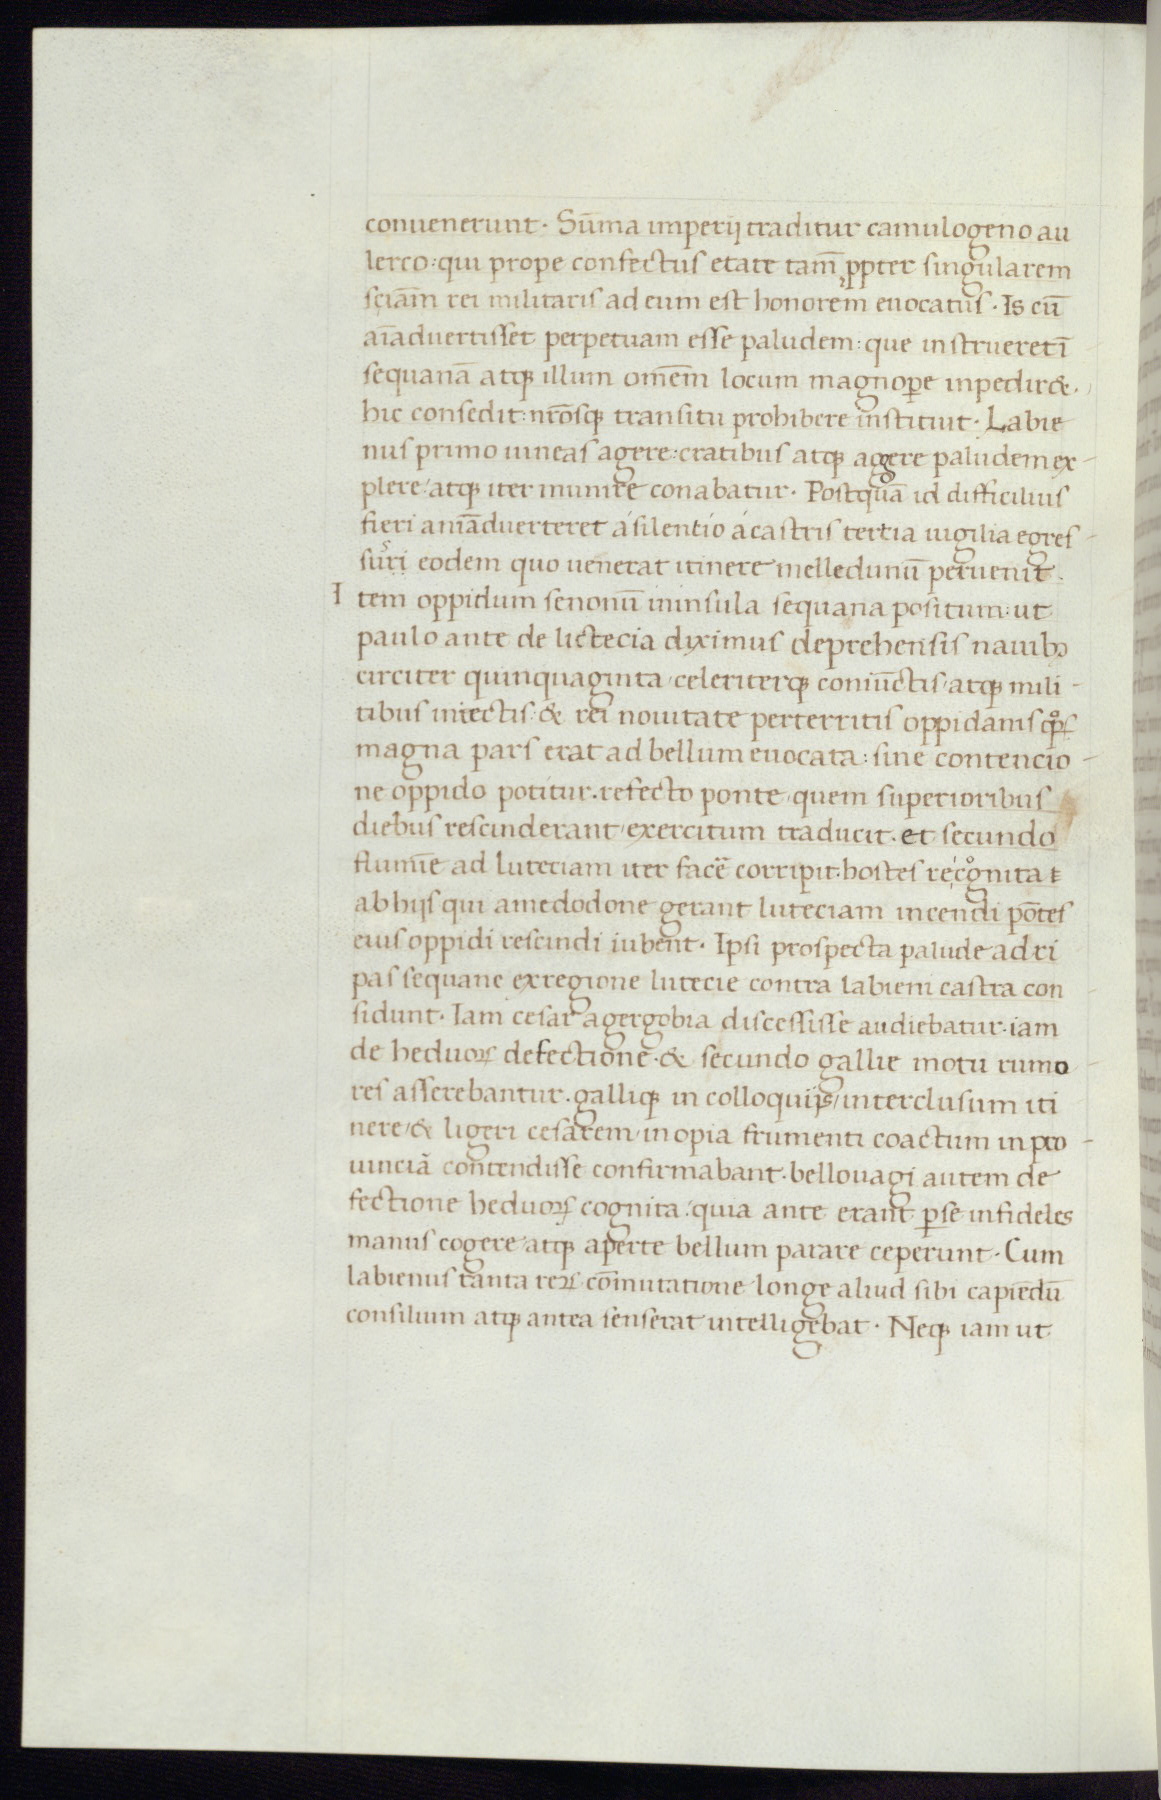 conuenerunt · Sūma imperij traditur camulogeno au
lerco : qui prope confectus etate tam̄ ꝓpter singularem
sciām rei militaris ad eum est honorem euocatus · Is cū
aīaduertisset perpetuam esse paludem : que instrueret ī
sequanā atq̨ illum omēm locum magnoꝑe inpedir& ·
hic consedit : nrōsq̨ transitu prohibere instituit · Labie
nus primo uineas agere : cratibus atq̨ aggere paludem ex-
plere / atq̨ iter munire conabatur · Postquā id difficilius
fieri aniāduerteret á silentio á castris tertia uigilia egres
suri eodem quo uenerat itinere melledunū peruenit .
Item oppidum senonū in insula sequana positum : ut
paulo ante de lictecia diximus deprehensis nauibꝫ
circiter quinquaginta / celeriterq̨ coniūctis / atq̨ mili-
tibus iniectis : & rei nouitate perterritis oppidanis qͦꝝ
magna pars erat ad bellum euocata : sine contencio-
ne oppido potitur . refecto ponte / quem superioribus
diebus rescinderant / exercitum traducit . et secundo
flumīe ad luteciam iter facē corripit . hostes re cognita t
ab hijs qui amedodone gerant luteciam incendi pōtes
eius oppidi rescindi iubent · Ipsi prospecta palude ad ri
pas sequane ex regione lutecie contra labieni castra con
sidunt · Iam cesar agergobia discessisse audiebatur . iam
de heduoꝝ defectione · & secundo gallie motu rumo
res asserebantur . galliq̨ in colloquijs / interclusum iti
nere / & ligeri cesarem / inopia frumenti coactum in pro-
uinciā contendisse confirmabant . bellouagi autem de
fectione heduoꝝ cognita / quia ante erant ꝑ se infideles
manus cogere / atq̨ aperte bellum parare ceperunt · Cum
labienus tanta reꝝ cōmutatione longe aliud sibi capiēdū
consilium atq̨ antea senserat intelligebat · Neq̨ iam ut